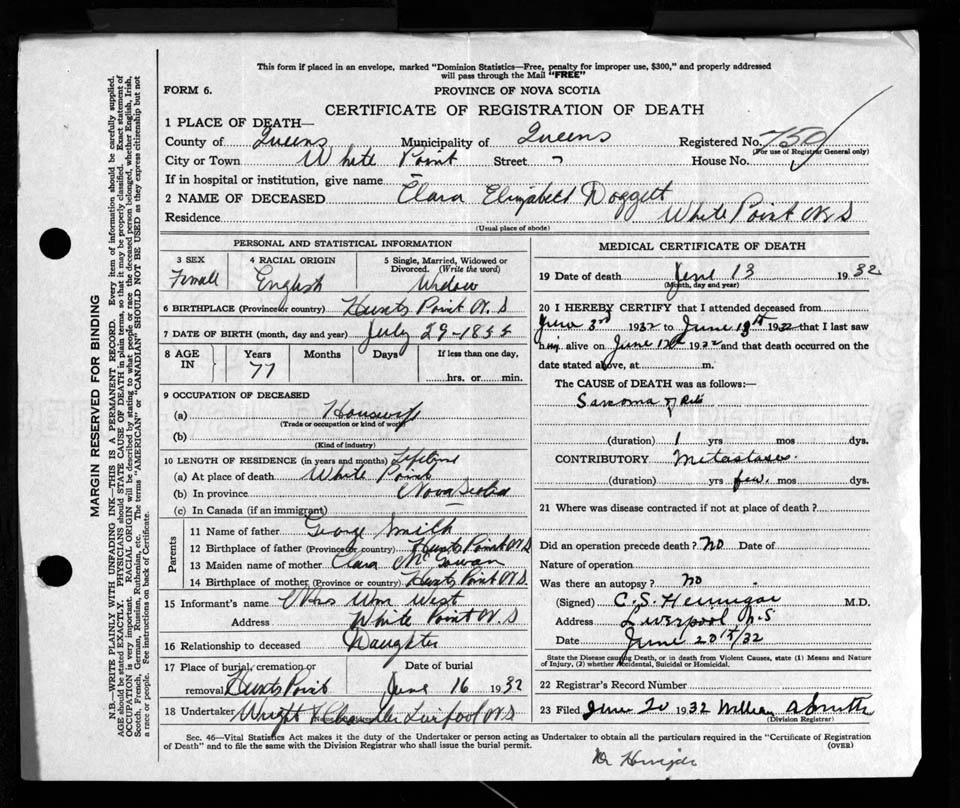 This form if placed in an envelope, marked "Dominion Statistics—Free, penalty for improper use, $300," and properly addressed
will pass through the Mail "FREE"
FORM 6.
PROVINCE OF NOVA SCOTIA
CERTIFICATE OF REGISTRATION OF DEATH
1 PLACE OF DEATH—
County of Queens Municipality of Queens Registered No. 750
(For use of Registrar General only)
City or Town White Point Street House No.
If in hospital or institution, give name
2 NAME OF DECEASED Clara Elizabeth Doggett
Residence White Point N S
(Usual place of abode)
PERSONAL AND STATISTICAL INFORMATION
3 SEX 4 RACIAL ORIGIN 5 Single, Married, Widowed or
Divorced. (Write the word)
Female English Widow
6 BIRTHPLACE (Province or country) Hunts Point N. S
7 DATE OF BIRTH (month, day and year) July 29-1855
8 AGE IN Years Months Days If less than one day,
77 hrs. or min.
9 OCCUPATION OF DECEASED
(a) Housewife
(Trade or occupation or kind of work)
(b)
(Kind of industry)
10 LENGTH OF RESIDENCE (in years and months) Lifetime
(a) At place of death White Point
(b) In province Nova Scotia
(c) In Canada (if an immigrant)
Parents
11 Name of father George Smith
12 Birthplace of father (Province or country) Hunts Point N S
13 Maiden name of mother Clara McGowan
14 Birthplace of mother (Province or country) Hunts Point N. S.
15 Informant's name Mrs Wm West
Address White Point N. S
16 Relationship to deceased Daughter
17 Place of burial, cremation or Date of burial
removal Hunts Point June 16 1932
18 Undertaker Wright & Chandler Liverpool N S
MEDICAL CERTIFICATE OF DEATH
19 Date of death June 13 1932
(Month, day and year)
20 I HEREBY CERTIFY that I attended deceased from
June 3rd 1932 to June 13th 1932 that I last saw
him alive on June 12th 1932 and that death occurred on the
date stated above, at m.
The CAUSE of DEATH was as follows:—
Sarcoma of
(duration) 1 yrs mos dys.
CONTRIBUTORY Metastases.
(duration) yrs few. mos dys.
21 Where was disease contracted if not at place of death?
Did an operation precede death? No Date of
Nature of operation
Was there an autopsy? no
(Signed) C. S. Hennigar M.D.
Address Liverpool N. S
Date June 20th/32
State the Disease causing Death, or in death from Violent Causes, state (1) Means and Nature
of Injury, (2) whether Accidental, Suicidal or Homicidal.
22 Registrar's Record Number
23 Filed June 20 1932 William Smith
(Division Registrar)
Sec. 46—Vital Statistics Act makes it the duty of the Undertaker or person acting as Undertaker to obtain all the particulars required in the "Certificate of Registration
of Death" and to file the same with the Division Registrar who shall issue the burial permit. (OVER)
MARGIN RESERVED FOR BINDING
N.B.—WRITE PLAINLY WITH UNFADING INK—THIS IS A PERMANENT RECORD. Every item of information should be carefully supplied.
AGE should be stated EXACTLY. PHYSICIANS should STATE CAUSE OF DEATH in plain terms, so that it may be properly classified. Exact statement of
OCCUPATION is very important. RACIAL ORIGIN will be described by stating to what people or race the deceased person belonged, whether English, Irish,
Scotch, French, German, Russian, Ruthenian, etc. The terms "AMERICAN" or "CANADIAN" SHOULD NOT BE USED as they express citizenship but not
a race or people. See instructions on back of Certificate.